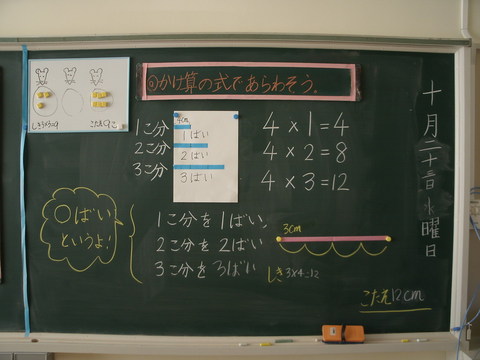 ◎かけ算の式であらわそう。
こたえ9こ
4cm
1こ分
1ばい
4×1=4
2こ分
2ばい
4×2=8
3こ分
3ばい
4×3=12
○ばい
というよ!
1こ分を1ばい,
2こ分を2ばい
3こ分を3ばい
3cm
しき3×4=12
こたえ12cm
水曜日